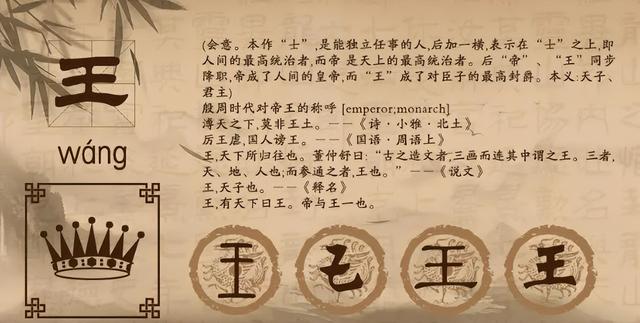 王
wáng
(会意。本作“士”,是能独立任事的人,后加一横,表示在“士”之上,即
人间的最高统治者,而帝 是天上的最高统治者。后“帝”、“王”同步
降职,帝成了人间的皇帝,而“王”成了对臣子的最高封爵。本义:天子、
君主)
殷周时代对帝王的称呼 [emperor;monarch]
溥天之下,莫非王土。——《诗·小雅·北土》
厉王虐,国人谤王。——《国语·周语上》
王,天下所归往也。董仲舒曰:“古之造文者,三画而连其中谓之王。三者,
天、地、人也;而参通之者,王也。”——《说文》
王,天子也。——《释名》
王,有天下曰王。帝与王一也。
王
王
王
王